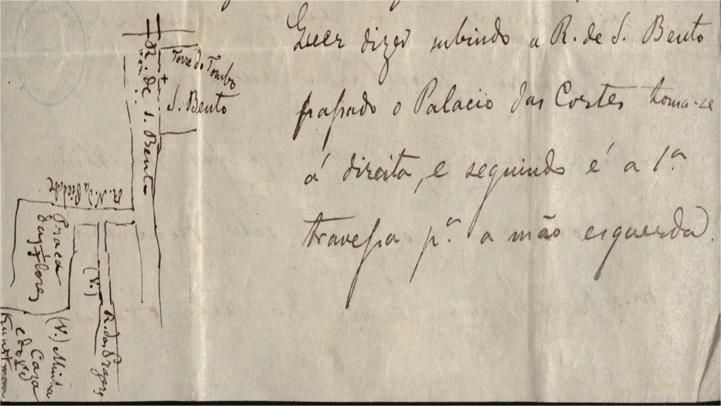 Quer dizer subindo a R. de S. Bento
passado o Palacio das Cortes toma-se
á direita, e seguindo é a 1ª
travessa pª a mão esquerda.
R. de S. Bento
Torre do Tombo
S. Bento
R. N. da Piedade
Praça
das Flores
(V.)
(V.) Minha
Caza